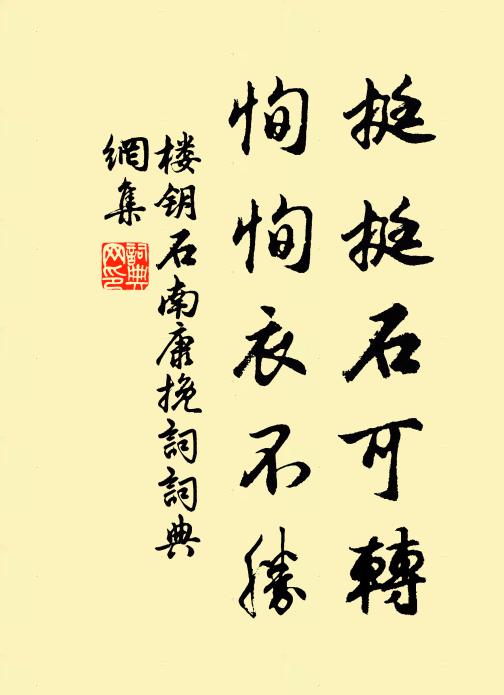 挺挺石可轉
恂恂衣不勝
楼钥石南康挽詞詞典
網集
詞典網印